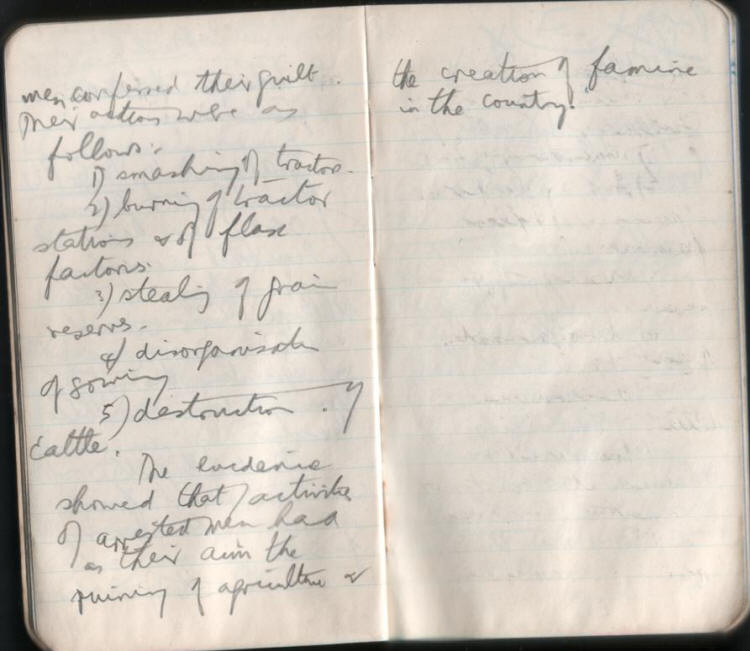 men confessed their guilt.
Their actions were as
follows:
1) smashing of tractors.
2) burning of tractor
stations & of flax
factories.
3) stealing of grain
reserves.
4) disorganisation
of sowing
5) destruction of
cattle.
The evidence
showed that activities
of arrested men had
as their aim the
ruining of agriculture &
the creation of famine
in the country.